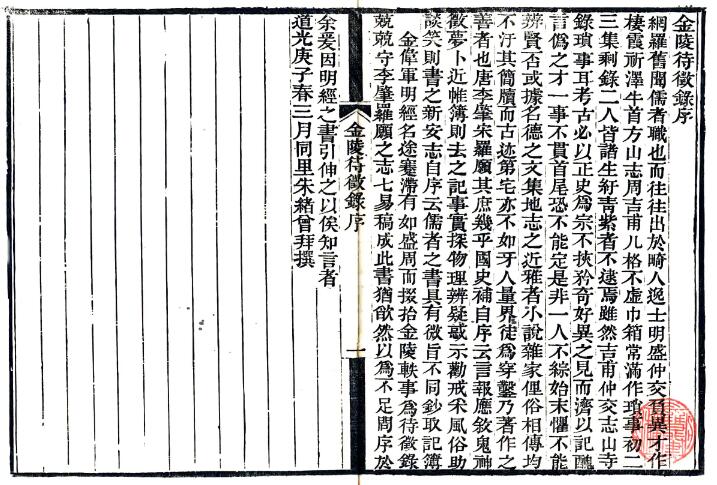 金陵待徵錄序
網羅舊聞儒者職也而往往出於畸人逸士明盛仲交負異才作
棲霞祈澤牛首方山志周吉甫几格不虛巾箱常滿作瑣事初二
三集剩錄二人皆諸生紆青紫者不逮焉雖然吉甫仲交志山寺
錄瑣事耳考古必以正史為宗不挾矜奇好異之見而濟以記醜
言偽之才一事不貫首尾恐不能定是非一人不綜始末懼不能
辨賢否或據名德之文集地志之近雅者小說雜家俚俗相傳均
不汙其簡牘而古迹第宅亦不如牙人量界徒為穿鑿乃著作之
善者也唐李肇朱羅願其庶幾乎國史補自序云言報應敘鬼神
徵夢卜近帷簿則去之記事實探物理辨疑惑示勸戒采風俗助
談笑則書之新安志自序云儒者之書具有微旨不同鈔取記簿
金偉軍明經名途蹇滯有如盛周而掇拾金陵軼事為待徵錄
兢兢守李肇羅願之志七易稿成此書猶欿然以為不足問序於
金陵待徵錄序
一
余爰因明經之書引伸之以俟知言者
道光庚子春三月同里朱緒曾拜撰